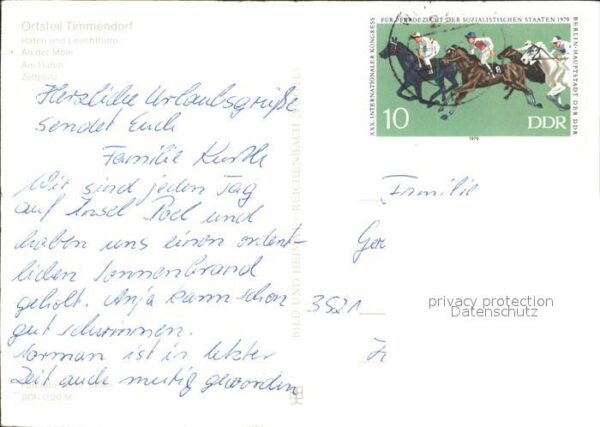 Ortsteil Timmendorf
Hafen und Leuchtturm
An der Mole
Am Hafen
Zeltplatz
Herzliche Urlaubsgrüße
sendet Euch
Familie Kurth
Wir sind jeden Tag
auf Insel Poel und
haben uns einen ordent-
lichen Sonnenbrand
geholt. Anja kann schon
gut schwimmen.
Norman ist in letzter
Zeit auch mutig geworden
DDR 0,20 M
BILD UND HEIMAT REICHENBACH
XXX. INTERNATIONALER KONGRESS
FÜR PFERDEZUCHT DER SOZIALISTISCHEN STAATEN 1979
BERLIN-HAUPTSTADT DER DDR
10
DDR
1979
Familie
Ger
3521
privacy protection
Datenschutz